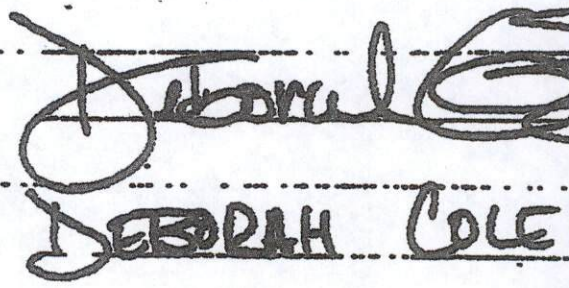 Deborah C
DEBORAH COLE